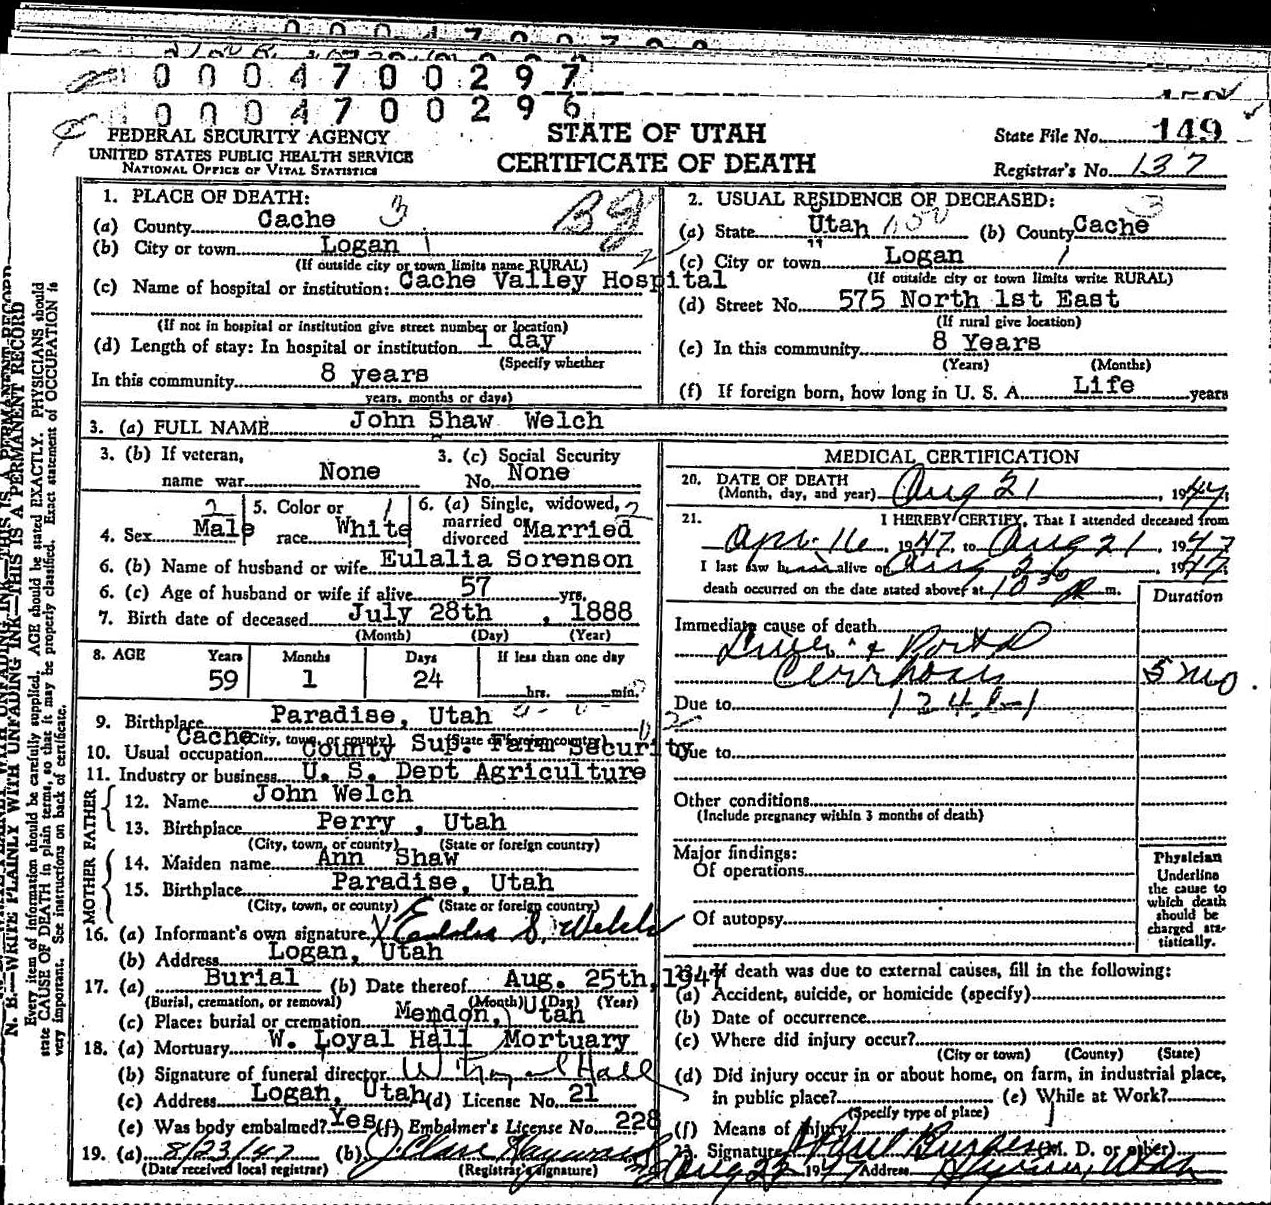 0004700297
0004700296
FEDERAL SECURITY AGENCY
UNITED STATES PUBLIC HEALTH SERVICE
NATIONAL OFFICE OF VITAL STATISTICS
STATE OF UTAH
CERTIFICATE OF DEATH
State File No. 149
Registrar's No. 137
1. PLACE OF DEATH:
(a) County Cache 3
(b) City or town Logan 1
(If outside city or town limits name RURAL)
(c) Name of hospital or institution: Cache Valley Hospital
(If not in hospital or institution give street number or location)
(d) Length of stay: In hospital or institution 1 day
(Specify whether
In this community 8 years
years, months or days)
2. USUAL RESIDENCE OF DECEASED:
(a) State Utah (b) County Cache
(c) City or town Logan 1
(If outside city or town limits write RURAL)
(d) Street No. 575 North 1st East
(If rural give location)
(e) In this community 8 Years
(Years) (Months)
(f) If foreign born, how long in U. S. A. Life years
3. (a) FULL NAME John Shaw Welch
3. (b) If veteran, name war None
3. (c) Social Security No. None
4. Sex Male
5. Color or race White
6. (a) Single, widowed, married or divorced Married
6. (b) Name of husband or wife Eulalia Sorenson
6. (c) Age of husband or wife if alive 57 yrs.
7. Birth date of deceased July 28th, 1888
(Month) (Day) (Year)
8. AGE Years Months Days If less than one day
59 1 24 hrs. min.
9. Birthplace Paradise, Utah
(City, town, or county) (State or foreign country)
10. Usual occupation Cache County Sup. Farm Security
11. Industry or business U. S. Dept Agriculture
FATHER
12. Name John Welch
13. Birthplace Perry, Utah
(City, town, or county) (State or foreign country)
MOTHER
14. Maiden name Ann Shaw
15. Birthplace Paradise, Utah
(City, town, or county) (State or foreign country)
16. (a) Informant's own signature X S. Welch
(b) Address Logan, Utah
17. (a) Burial (b) Date thereof Aug. 25th, 1947
(Burial, cremation, or removal) (Month) (Day) (Year)
(c) Place: burial or cremation Mendon, Utah
18. (a) Mortuary W. Loyal Hall Mortuary
(b) Signature of funeral director W Loyal Hall
(c) Address Logan, Utah (d) License No. 21
(e) Was body embalmed? Yes (f) Embalmer's License No. 228
19. (a) 8/23/47 (b)
(Date received local registrar) (Registrar's signature)
MEDICAL CERTIFICATION
20. DATE OF DEATH
(Month, day, and year) Aug 21, 1947
21. I HEREBY CERTIFY, That I attended deceased from
Apr. 16, 1947, to Aug 21, 1947
I last saw h alive on Aug 21, 1947
death occurred on the date stated above, at 10 30 P m.
Duration
Immediate cause of death
Portal
Cirrhosis 5 mo.
Due to 124
Due to
Other conditions
(Include pregnancy within 3 months of death)
Major findings:
Of operations
Of autopsy
Physician
Underline
the cause to
which death
should be
charged sta-
tistically.
If death was due to external causes, fill in the following:
(a) Accident, suicide, or homicide (specify)
(b) Date of occurrence
(c) Where did injury occur?
(City or town) (County) (State)
(d) Did injury occur in or about home, on farm, in industrial place,
in public place? (e) While at Work?
(Specify type of place)
(f) Means of injury
23. Signature (M. D. or other)
Aug 22 1947 Address
N. B.—WRITE PLAINLY WITH UNFADING INK—THIS IS A PERMANENT RECORD
Every item of information should be carefully supplied. AGE should be stated EXACTLY. PHYSICIANS should
state CAUSE OF DEATH in plain terms, so that it may be properly classified. Exact statement of OCCUPATION is
very important. See instructions on back of certificate.